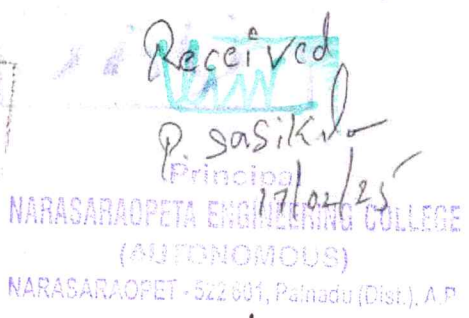 Received
P. Sasikala
Principal
17/02/25
NARASARAOPETA ENGINEERING COLLEGE
(AUTONOMOUS)
NARASARAOPET - 522 601, Palnadu (Dist.), A.P.